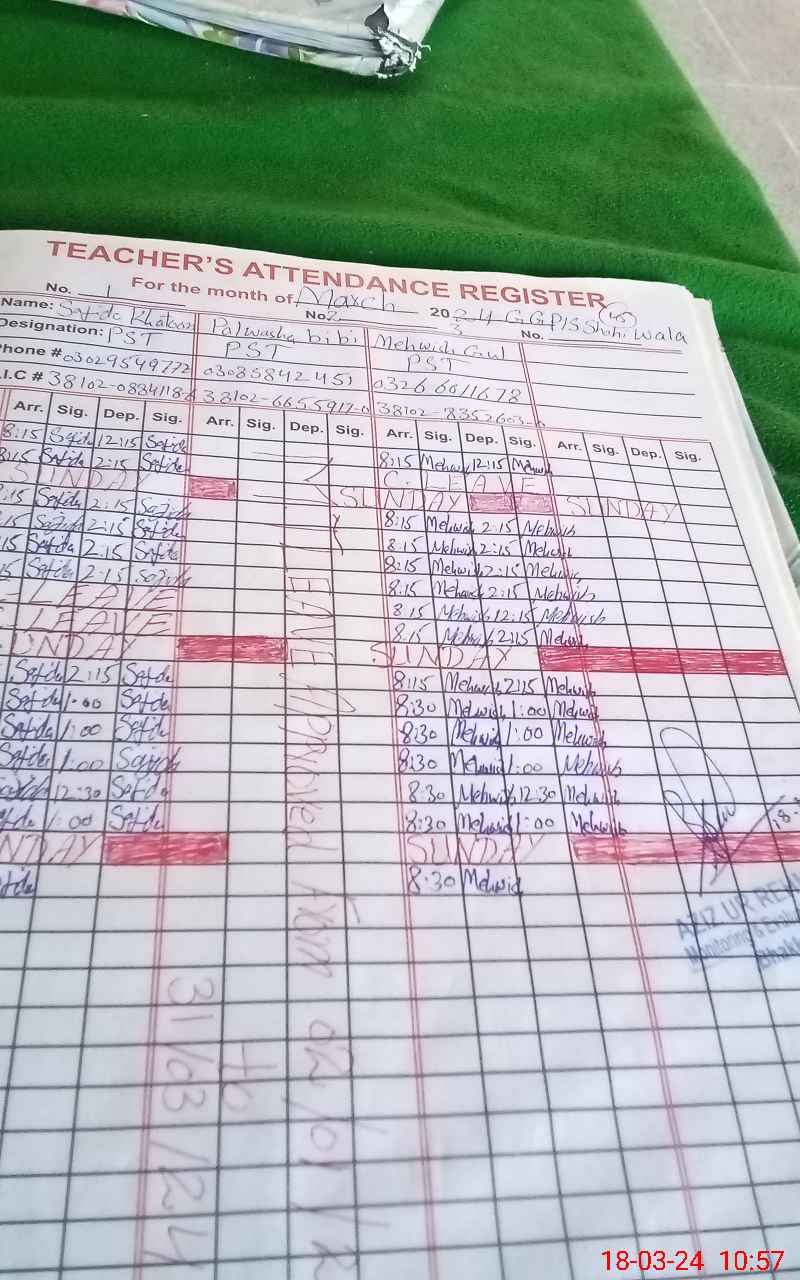 TEACHER'S ATTENDANCE REGISTER
No. 1 For the month of March 2024 G.G.P/S Shahi wala
Name: Safida Khatoon No 2. Palwasha bibi 3 Mehwish Gul No.
Designation: PST PST PST
Phone # 03029549772 03085842451 03266011678
I.C # 38102-0884118-6 38102-6655917-0 38102-8352603-
Arr. Sig. Dep. Sig. Arr. Sig. Dep. Sig. Arr. Sig. Dep. Sig. Arr. Sig. Dep. Sig.
8:15 Safida 12:15 Safida 8:15 Mehwish 12:15 Mehwish
8:15 Safida 2:15 Safida C. LEAVE
SUNDAY SUNDAY SUNDAY
8:15 Safida 2:15 Safida 8:15 Mehwish 2:15 Mehwish
15 Safida 2:15 Safida 8:15 Mehwish 2:15 Mehwish
15 Safida 2:15 Safida 8:15 Mehwish 2:15 Mehwish
15 Safida 2:15 Safida 8:15 Mehwish 2:15 Mehwish
LEAVE 8:15 Mehwish 12:15 Mehwish
LEAVE 8:15 Mehwish 2:15 Mehwish
UNDAY SUNDAY
Safida 2:15 Safida 8:15 Mehwish 2:15 Mehwish
Safida 1:00 Safida 8:30 Mehwish 1:00 Mehwish
Safida 1:00 Safida 8:30 Mehwish 1:00 Mehwish
Safida 1:00 Safida 8:30 Mehwish 1:00 Mehwish
Safida 12:30 Safida 8:30 Mehwish 12:30 Mehwish
Safida 1:00 Safida 8:30 Mehwish 1:00 Mehwish
NDAY SUNDAY
Safida 8:30 Mehwish
LEAVE Approved from 02/01/2
To
31/03/24
AZIZ UR REH
Monitoring & Evalu
Bhakk
18-03-24 10:57